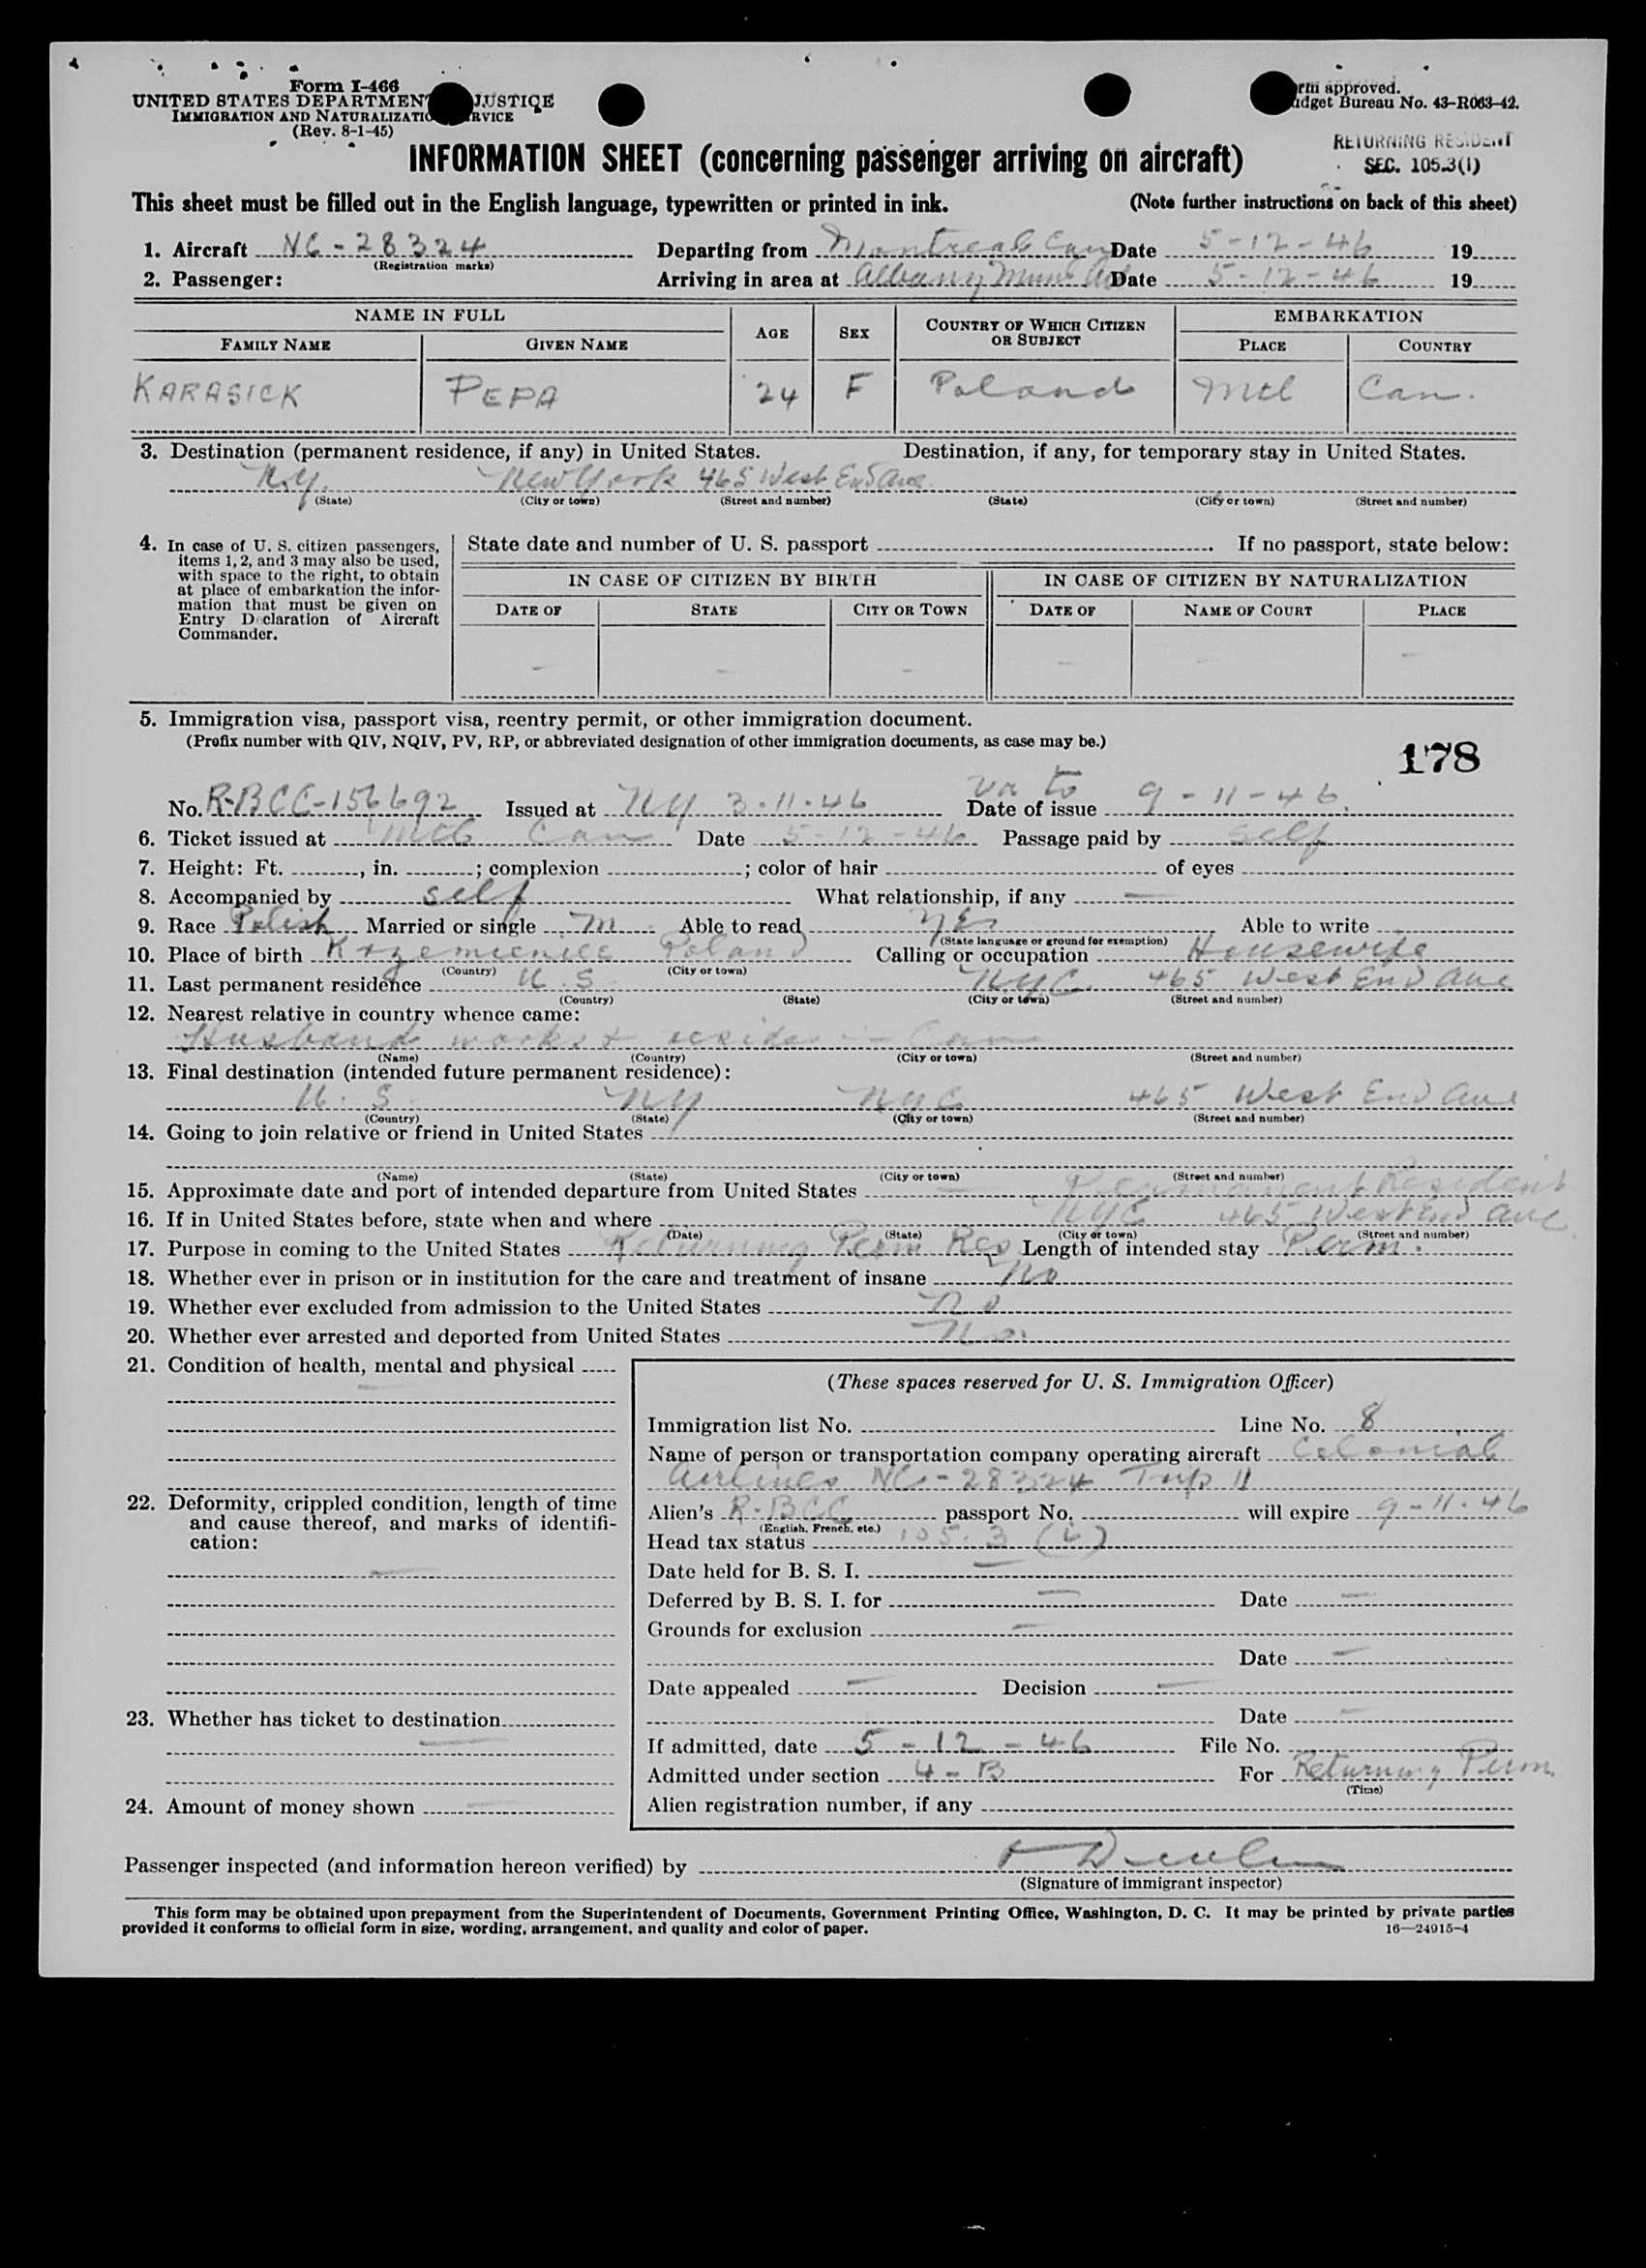 Form I-466
UNITED STATES DEPARTMENT JUSTICE
IMMIGRATION AND NATURALIZATIO RVICE
(Rev. 8-1-45)
rm approved.
udget Bureau No. 43-R063-42.
RETURNING RESIDENT
SEC. 105.3(1)
INFORMATION SHEET (concerning passenger arriving on aircraft)
This sheet must be filled out in the English language, typewritten or printed in ink. (Note further instructions on back of this sheet)
1. Aircraft NC-28324 Departing from Montreal Can Date 5-12-46 19
(Registration marks)
2. Passenger: Arriving in area at Albany Mun Date 5-12-46 19
NAME IN FULL AGE SEX COUNTRY OF WHICH CITIZEN OR SUBJECT EMBARKATION
FAMILY NAME GIVEN NAME PLACE COUNTRY
KARASICK PEPA 24 F Poland Mtl Can.
3. Destination (permanent residence, if any) in United States. Destination, if any, for temporary stay in United States.
N.Y. New York 465 West End Ave.
(State) (City or town) (Street and number) (State) (City or town) (Street and number)
4. In case of U. S. citizen passengers, items 1, 2, and 3 may also be used, with space to the right, to obtain at place of embarkation the information that must be given on Entry D claration of Aircraft Commander.
State date and number of U. S. passport If no passport, state below:
IN CASE OF CITIZEN BY BIRTH IN CASE OF CITIZEN BY NATURALIZATION
DATE OF STATE CITY OR TOWN DATE OF NAME OF COURT PLACE
- - - - - -
5. Immigration visa, passport visa, reentry permit, or other immigration document.
(Prefix number with QIV, NQIV, PV, RP, or abbreviated designation of other immigration documents, as case may be.)
178
to
No. R-BCC-156692 Issued at NY 3-11-46 Date of issue 9-11-46.
6. Ticket issued at Mtl Can Date 5-12-46 Passage paid by self
7. Height: Ft. , in. ; complexion ; color of hair of eyes
8. Accompanied by self What relationship, if any —
9. Race Polish Married or single M Able to read yes Able to write
(State language or ground for exemption)
10. Place of birth Poland Calling or occupation Housewife
(Country) (City or town)
11. Last permanent residence U.S. NYC. 465 West End Ave
(Country) (State) (City or town) (Street and number)
12. Nearest relative in country whence came:
Husband works + reside in Can
(Name) (Country) (City or town) (Street and number)
13. Final destination (intended future permanent residence):
U.S. NY NYC 465 West End Ave
(Country) (State) (City or town) (Street and number)
14. Going to join relative or friend in United States
(Name) (State) (City or town) (Street and number)
15. Approximate date and port of intended departure from United States — Permanent Resident
16. If in United States before, state when and where NYC 465 West End Ave
(Date) (State) (City or town) (Street and number)
17. Purpose in coming to the United States Returning Perm Res Length of intended stay Perm.
18. Whether ever in prison or in institution for the care and treatment of insane No
19. Whether ever excluded from admission to the United States No
20. Whether ever arrested and deported from United States No.
21. Condition of health, mental and physical
—
22. Deformity, crippled condition, length of time and cause thereof, and marks of identification:
—
23. Whether has ticket to destination
—
24. Amount of money shown —
(These spaces reserved for U. S. Immigration Officer)
Immigration list No. Line No. 8
Name of person or transportation company operating aircraft Colonial
Airlines NC-28324 Trip 11
Alien's R-BCC passport No. will expire 9-11-46
(English, French, etc.)
Head tax status 105.3 (b)
Date held for B. S. I. —
Deferred by B. S. I. for — Date —
Grounds for exclusion —
Date —
Date appealed — Decision —
Date —
If admitted, date 5-12-46 File No.
Admitted under section 4-B For Returning Perm.
(Time)
Alien registration number, if any
Passenger inspected (and information hereon verified) by
(Signature of immigrant inspector)
This form may be obtained upon prepayment from the Superintendent of Documents, Government Printing Office, Washington, D. C. It may be printed by private parties
provided it conforms to official form in size, wording, arrangement, and quality and color of paper. 16—24915-4